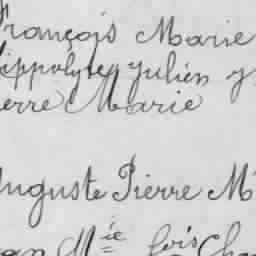 François Marie
Hippolyte Julien
Pierre Marie
Auguste Pierre M
Mie